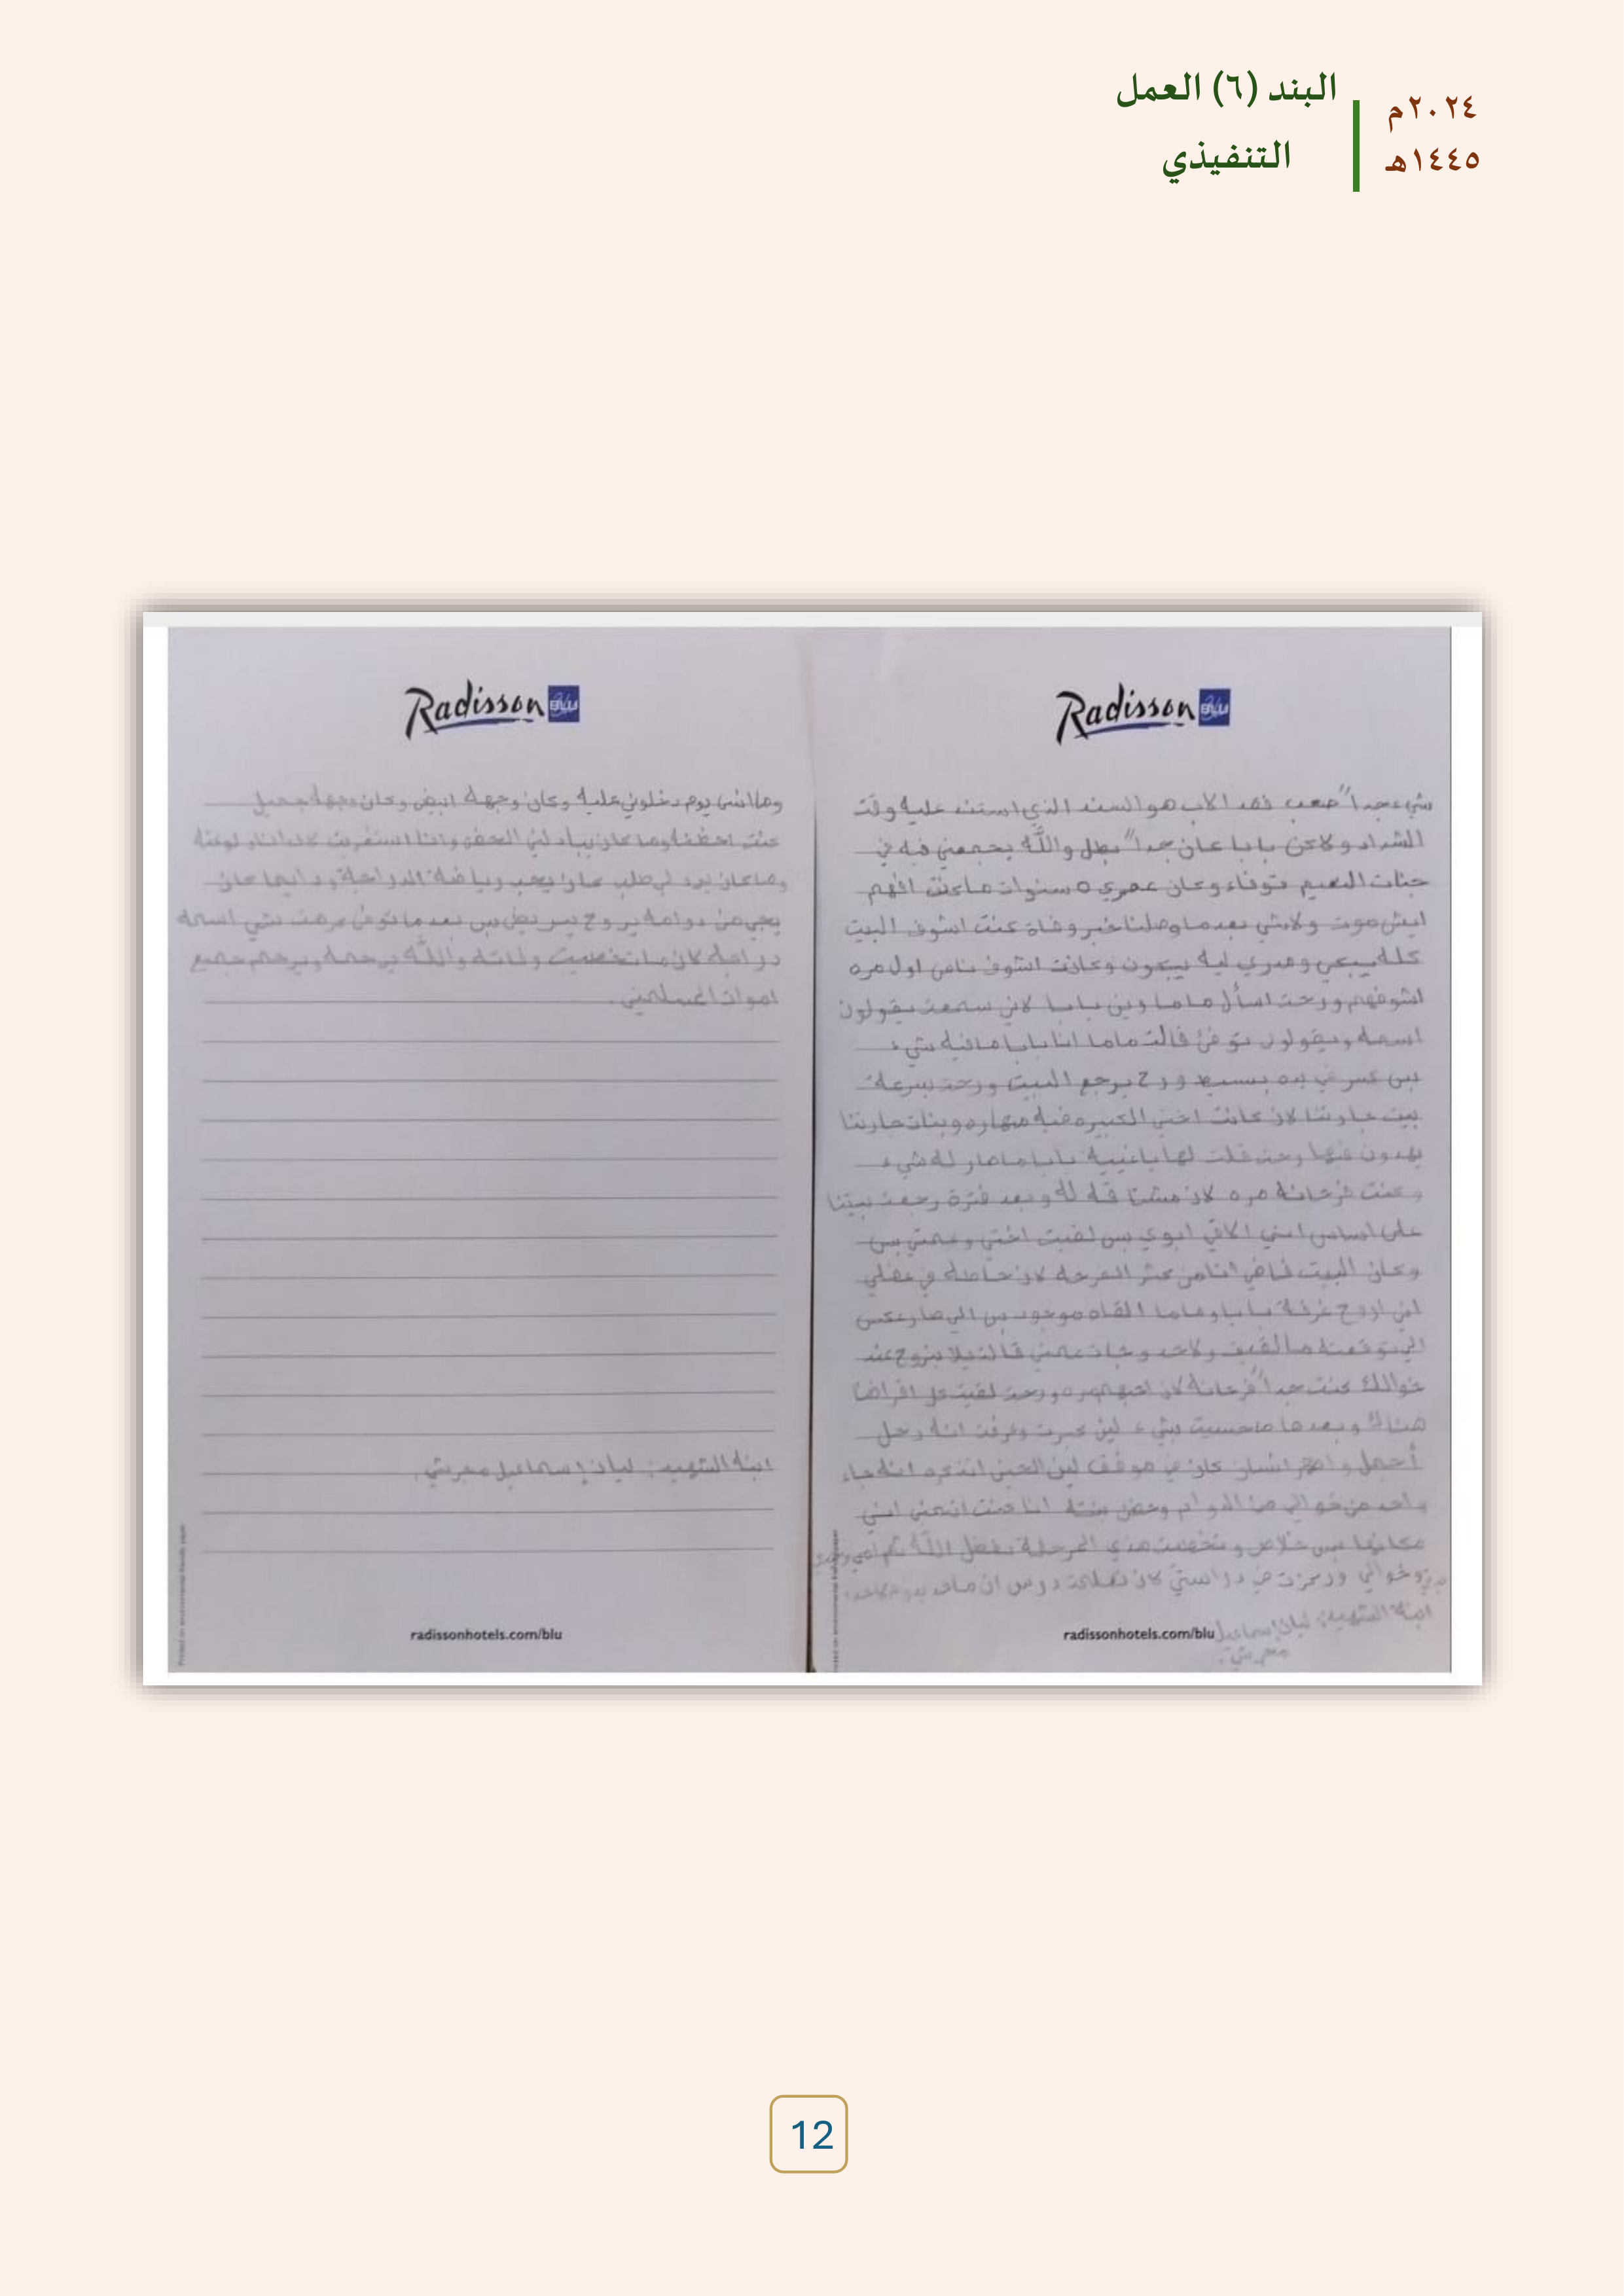 ٢٠٢٤م
١٤٤٥هـ
البند (٦) العمل
التنفيذي
Radisson BLU
شيء جداً صعب فقد الاب هو السند الذي استند عليه وقت
الشداد ولاكن بابا كان جداً بطل والله يجمعني فيه في
جنات النعيم توفاء وكان عمري ٥ سنوات ماكنت افهم
ايش موت ولاشي بعد ماوصلنا خبر وفاة كنت اشوف البيت
كله يبكي ومدري ليه يبكون وكانت اشوف ناس اول مره
اشوفهم ورحت اسأل ماما وين بابا لاني سمعت يقولون
اسمه ويقولون توفئ قالت ماما انا بابا مافيه شيء
بس كسر في يده بسيط ورح يرجع البيت ورحت بسرعة
بيت جارتنا لان كانت اختي الكبيره فيه منهاره وبنات جارتنا
يهدون فيها رحت قلت لها ياغبية بابا ماصار له شيء
وكنت فرحانه مره لان مشتاقه له وبعد فترة رجعت بيتنا
على اساس انني الاقي ابوي بس لقيت اختي وعمتي بس
وكان البيت فاضي انا من كثر الفرحه لان حاطه في عقلي
اني اروح غرفة بابا وماما القاه موجود بس الي صار عكس
الي توقعته مالقيت ولاحد وجات عمتي قالت يلا بنروح عند
خوالك كنت جداً فرحانه لان احبهم مره ورحت لقيت كل افراضا
هناك وبعدها ماحسيت بشيء لين كبرت وعرفت انه رحل
أجمل واطهر انسان كان في موقف لين الحين اتذكره انه جاء
واحد من خوالي من الدوام وحضن بنته انا كنت اتمنى انني
مكانها بس خلاص وتخطيت هذي المرحلة بفضل الله ثم امي
وخوالي وركزت في دراستي لان
ابنة الشهيد: ليان إسماعيل
مجرشي.
radissonhotels.com/blu
Radisson BLU
وماانسى يوم دخلوني عليه وكان وجهة ابيض وكان وجهة جميل
كنت احظنه وما كان يبادلني الحظن وانا استغربت
وماكان يرد لي طلب كان يحب رياضة الدراجة ودايما كان
يجي من دوامه يروح يسر بطل بس بعد ماتوفى عرفت شي اسمه
دراجة كان والله يرحمه ويرحم جميع
اموات المسلمين.
ابنة الشهيد: ليان إسماعيل مجرشي.
radissonhotels.com/blu
12